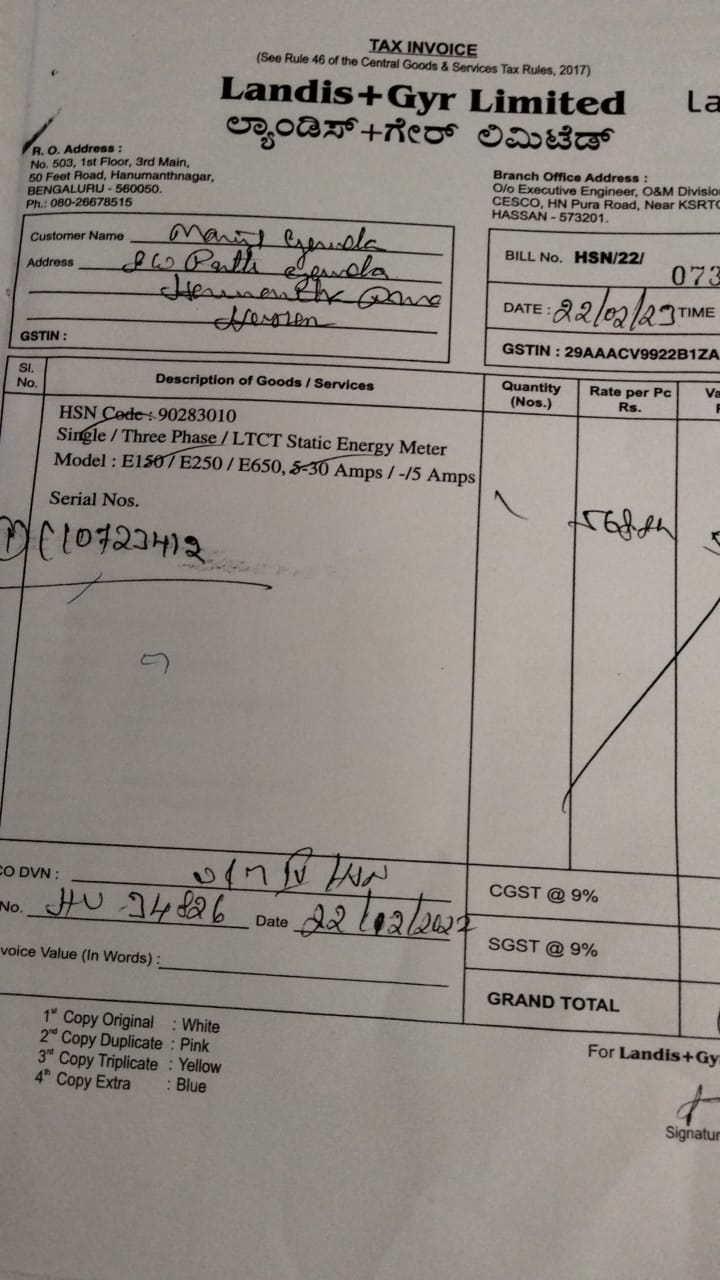 TAX INVOICE
(See Rule 46 of the Central Goods & Services Tax Rules, 2017)
Landis+Gyr Limited
La
ಲ್ಯಾಂಡಿಸ್+ಗೇರ್ ಲಿಮಿಟೆಡ್
R. O. Address :
No. 503, 1st Floor, 3rd Main,
50 Feet Road, Hanumanthnagar,
BENGALURU - 560050.
Ph.: 080-26678515
Branch Office Address :
O/o Executive Engineer, O&M Divisio
CESCO, HN Pura Road, Near KSRTC
HASSAN - 573201.
Customer Name
Address
GSTIN :
BILL No. HSN/22/ 073
DATE : 22/02/23 TIME
GSTIN : 29AAACV9922B1ZA
Sl. No.
Description of Goods / Services
Quantity (Nos.)
Rate per Pc Rs.
Va
HSN Code : 90283010
Single / Three Phase / LTCT Static Energy Meter
Model : E150 / E250 / E650, 5-30 Amps / -/5 Amps
Serial Nos.
CO DVN :
No. HU-34826 Date
voice Value (In Words) :
CGST @ 9%
SGST @ 9%
GRAND TOTAL
1st Copy Original : White
2nd Copy Duplicate : Pink
3rd Copy Triplicate : Yellow
4th Copy Extra : Blue
For Landis+Gy
Signatur